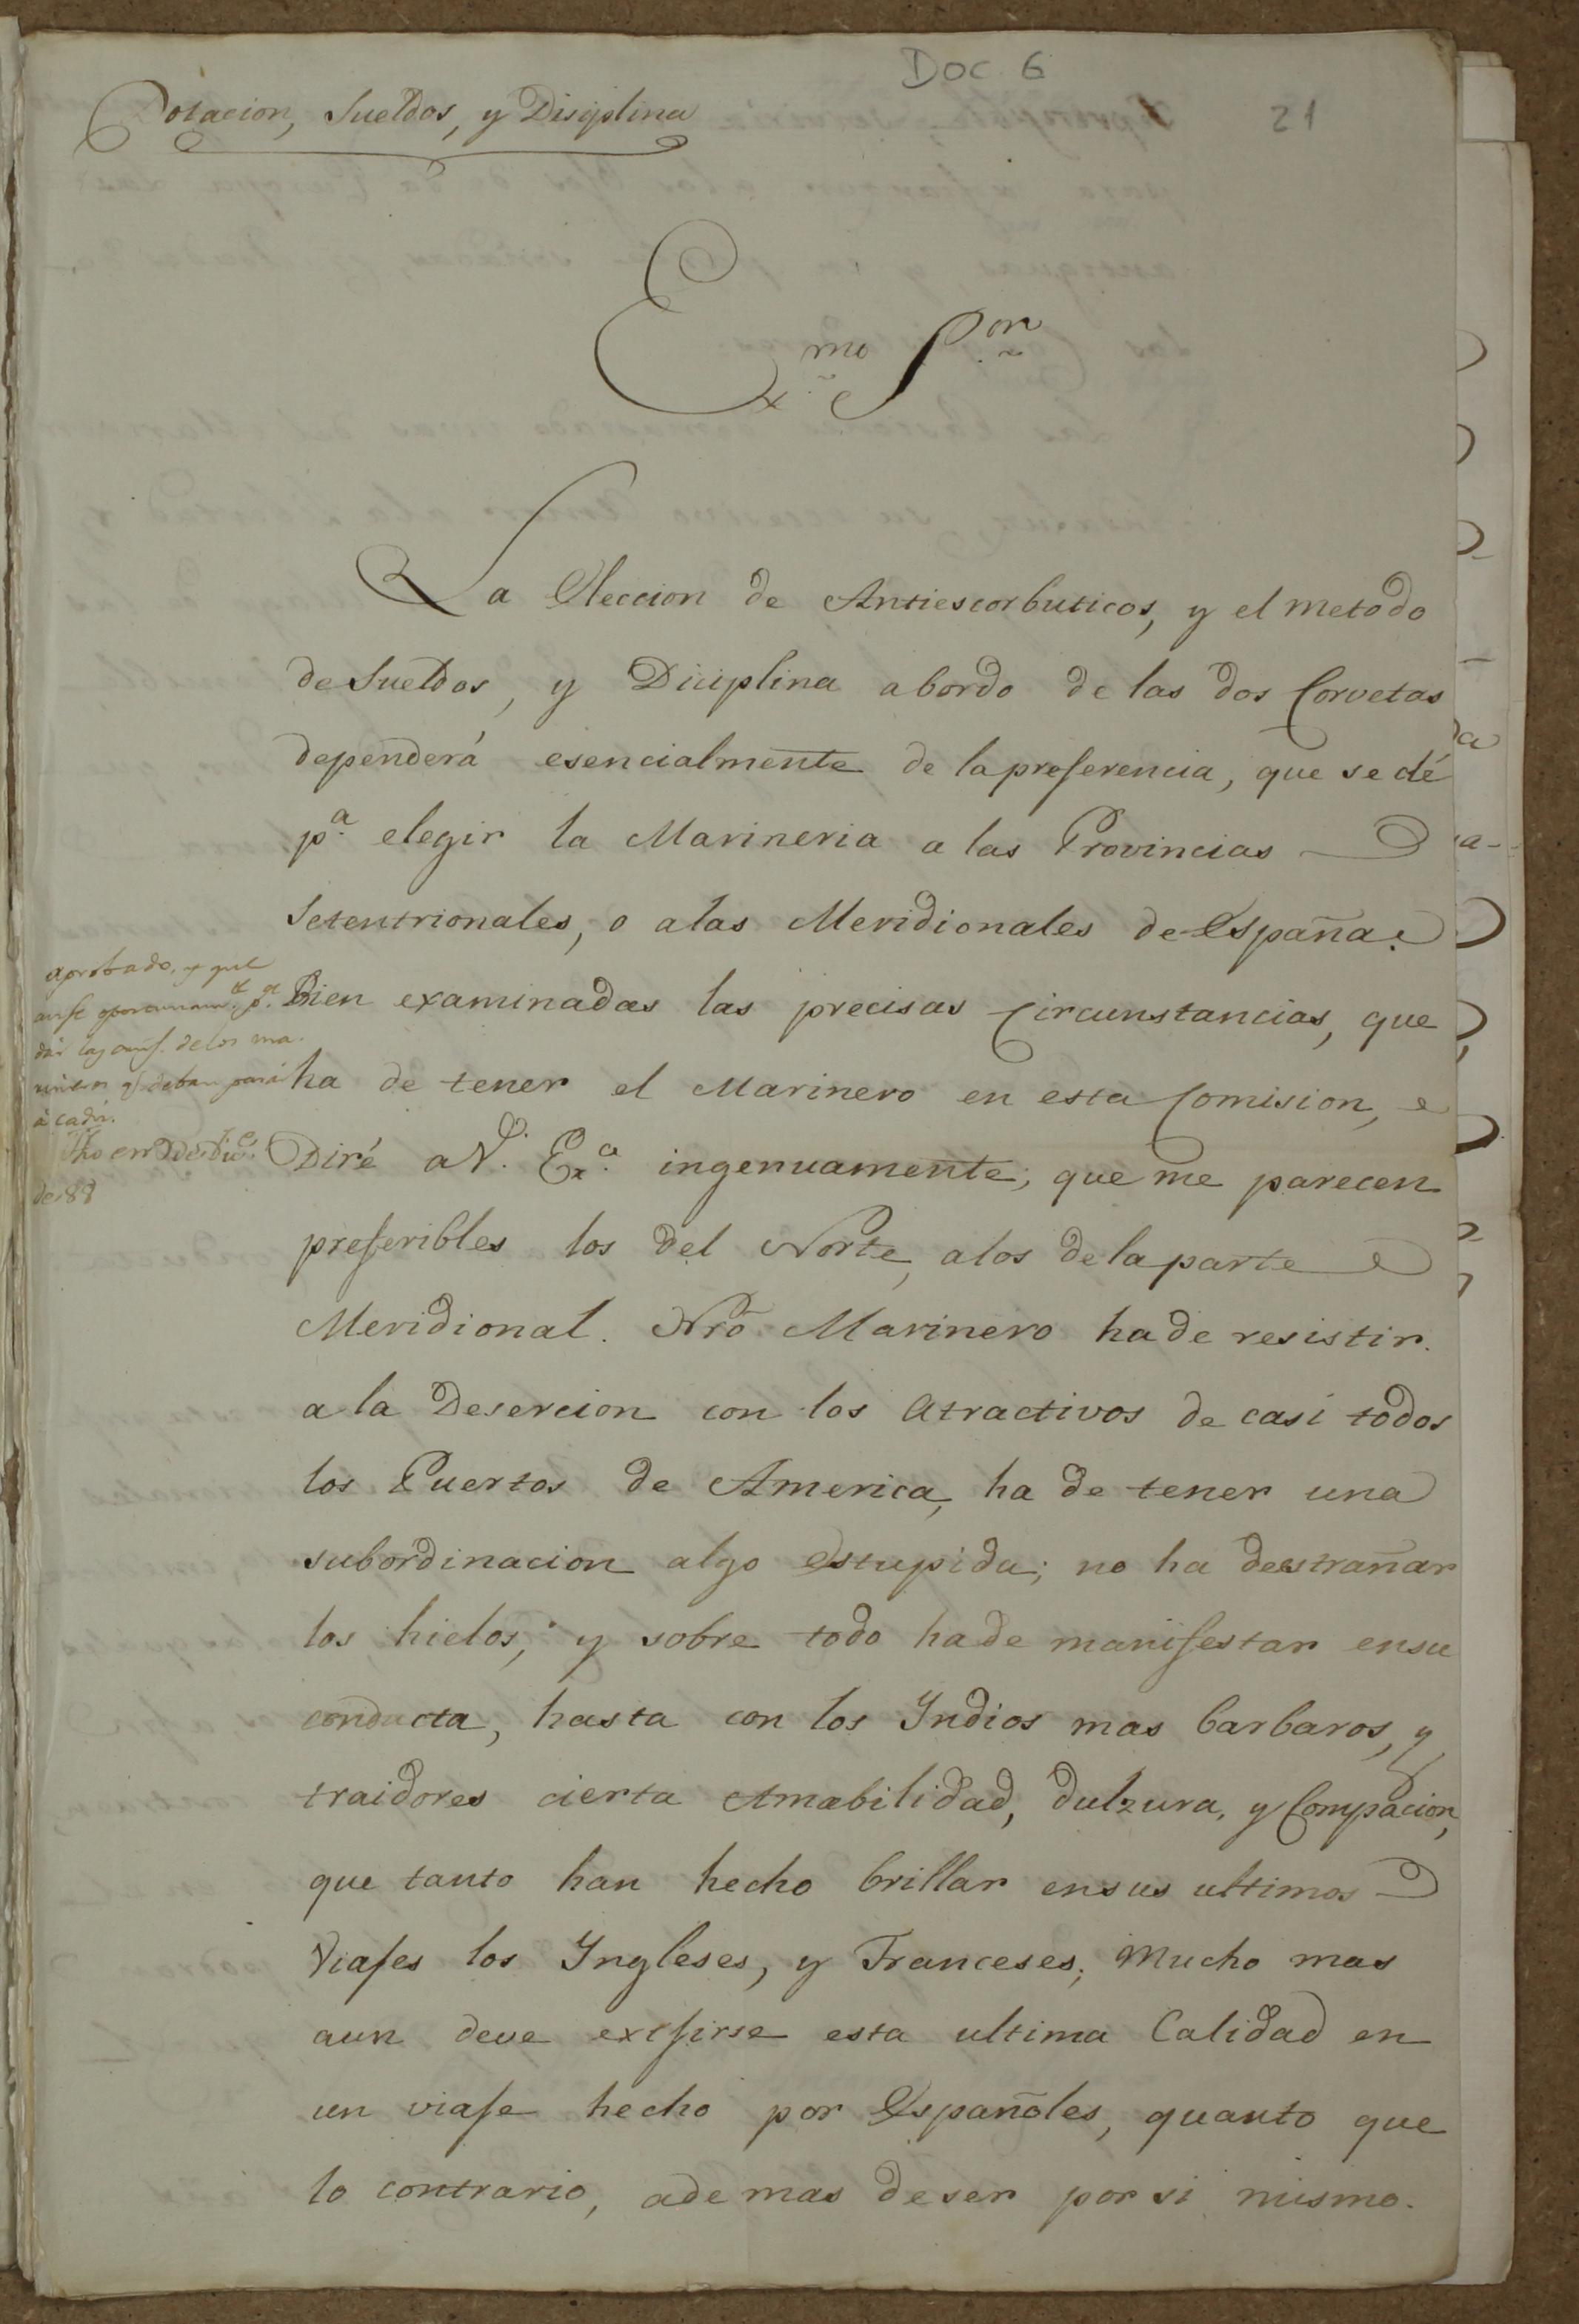 DOC. 6
21
Dotacion, Sueldos, y Disciplina
Exmo Sor
La Eleccion de Antiescorbuticos, y el metodo
de Sueldos, y Diciplina abordo de las dos Corvetas
dependerá esencialmente de la preferencia, que se dé
pa. elegir la Marineria a las Provincias
Setentrionales, o alas Meridionales de España.
Bien examinadas las precisas Circunstancias, que
ha de tener el Marinero en esta Comision,
Diré a V. Exa. ingenuamente; que me parecen
preferibles los del Norte, alos dela parte
Meridional. Nro Marinero hade resistir
a la Desercion con los Atractivos de casi todos
los Puertos de America, ha de tener una
subordinacion algo estupida; no ha deestrañar
los hielos; y sobre todo hade manifestar ensu
conducta, hasta con los Yndios mas barbaros, y
traidores cierta Amabilidad, dulzura, y Compacion,
que tanto han hecho brillar ensus ultimos
Viajes los Yngleses, y Franceses; Mucho mas
aun deve exijirse esta ultima Calidad en
un viaje hecho por Españoles, quanto que
lo contrario, ademas deser por si mismo.
aprobado, y que
avise oportunamte. pa. qe
dár los avis. delos ma-
rineros qe deban pasar
à cadiz.
fho en de Dice.
de 88